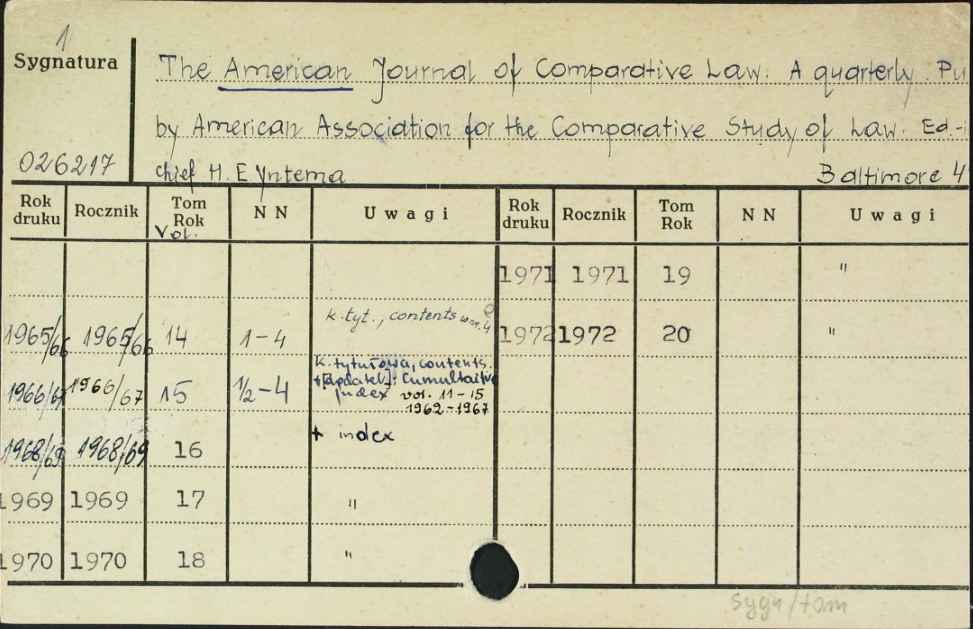 1
Sygnatura
The American Journal of Comparative Law. A quarterly. Pu
by American Association for the Comparative Study of Law. Ed.-
026217
chief H. E Yntema Baltimore 4
Rok druku Rocznik Tom Rok NN Uwagi Rok druku Rocznik Tom Rok NN Uwagi
Vol.
1971 1971 19 "
1965/66 1965/66 14 1-4 k. tyt., contents w nr. 4 1972 1972 20 "
1966/67 1966/67 15 1/2-4 k. tytułowa, contents.
+ : Cumultaitve
Index vol. 11-15
1962-1967
1968/69 1968/69 16 + index
1969 1969 17 "
1970 1970 18 "
sygn/tom